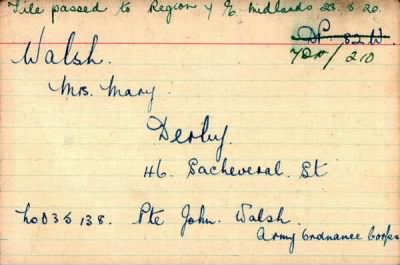 File passed to Region 4 E. Midlands 28.8.20.
DP. 82 W.
Walsh.
7DP/210
Mrs. Mary.
Derby.
46. Sacheveral. St
No 035138. Pte John. Walsh.
Army Ordnance Corps